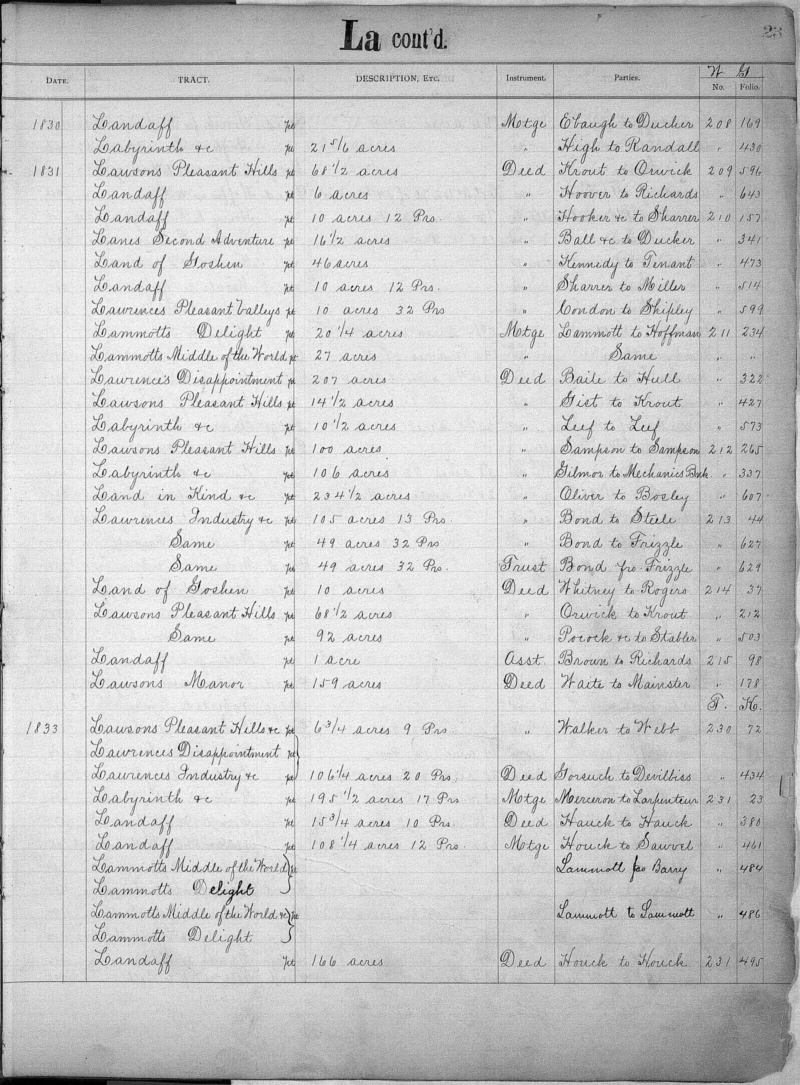 La cont'd. 23
DATE. TRACT. DESCRIPTION, ETC. Instrument. Parties. W G No. Folio.
1830 Landaff pt Mtge Ebaugh to Ducker 208 169
Labyrinth &c pt 21 5/6 acres " High to Randall " 430
1831 Lawsons Pleasant Hills pt 68 1/2 acres Deed Krout to Orwick 209 596
Landaff pt 6 acres " Hoover to Richards " 643
Landaff pt 10 acres 12 Prs. " Hooker &c to Sharrer 210 157
Lanes Second Adventure pt 16 1/2 acres " Ball &c to Ducker " 341
Land of Goshen pt 46 acres " Kennedy to Tenant " 473
Landaff pt 10 acres 12 Prs. " Sharrer to Miller " 514
Lawrences Pleasant Valleys pt 10 acres 32 Prs " Condon to Shipley " 599
Lammotts Delight pt 20 1/4 acres Mtge Lammott to Hoffman 211 234
Lammotts Middle of the World pt 27 acres " Same " "
Lawrence's Disappointment pt 207 acres Deed Baile to Hull " 322
Lawsons Pleasant Hills pt 14 1/2 acres " Gist to Krout " 427
Labyrinth &c pt 10 1/2 acres " Leef to Leef " 573
Lawsons Pleasant Hills pt 100 acres " Sampson to Sampson 212 265
Labyrinth &c pt 106 acres " Gilmor to Mechanics Bnk. " 337
Land in Kind &c pt 234 1/2 acres " Oliver to Bosley " 607
Lawrences Industry &c pt 105 acres 13 Prs. " Bond to Steele 213 44
Same pt 49 acres 32 Prs " Bond to Frizzle " 627
Same pt 49 acres 32 Prs. Trust Bond fro. Frizzle " 629
Land of Goshen pt 10 acres Deed Whitney to Rogers 214 37
Lawsons Pleasant Hills pt 68 1/2 acres " Orwick to Krout " 212
Same pt 92 acres " Pocock &c to Stabler " 503
Landaff pt 1 acre Asst. Brown to Richards 215 98
Lawsons Manor pt 159 acres Deed Waite to Mainster " 178
T. K.
1833 Lawsons Pleasant Hills &c pt 6 3/4 acres 9 Prs " Walker to Webb 230 72
Lawrences Disappointment pt
Lawrences Industry &c pt 106 1/4 acres 20 Prs. Deed Gorsuch to Devilbiss " 434
Labyrinth &c pt 195 1/2 acres 17 Prs Mtge Merceron to Larpenteur 231 23
Landaff pt 15 3/4 acres 10 Prs. Deed Hauck to Hauck " 380
Landaff pt 108 1/4 acres 12 Prs. Mtge Houck to Sawvel " 461
Lammotts Middle of the World pt Lammott fro Barry " 484
Lammotts Delight
Lammotts Middle of the World &c pt Lammott to Lammott " 486
Lammotts Delight
Landaff pt 166 acres Deed Houck to Houck 231 495